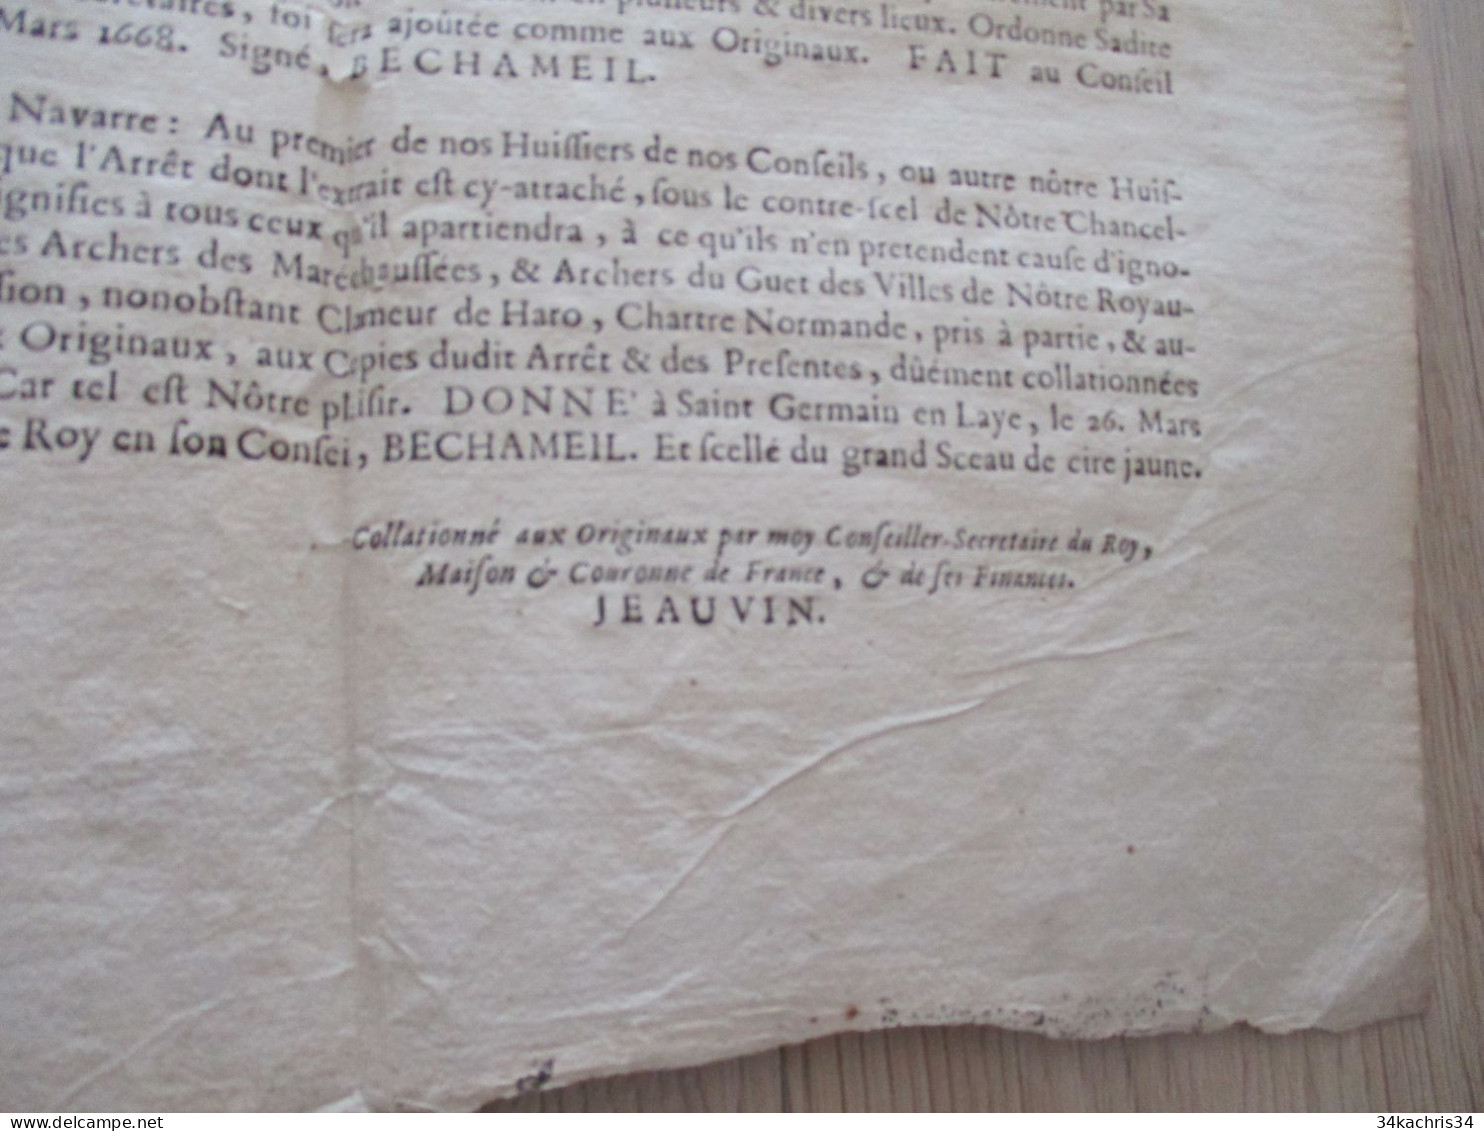 par Sa
foi sera ajoûtée comme aux Originaux. plusieurs & divers lieux. Ordonne Sadite
Mars 1668. Signé, BECHAMEIL. FAIT au Conseil
Navarre: Au premier de nos Huiſſiers de nos Conſeils, ou autre nôtre Huiſ-
que l'Arrêt dont l'extrait eſt cy-attaché, ſous le contre-ſcel de Nôtre Chancel-
ignifies à tous ceux qu'il apartiendra, à ce qu'ils n'en pretendent cauſe d'igno-
es Archers des Maréchauſſées, & Archers du Guet des Villes de Nôtre Royau-
ſion, nonobſtant Clameur de Haro, Chartre Normande, pris à partie, & au-
Originaux, aux Copies dudit Arrêt & des Preſentes, dûëment collationnées
Car tel eſt Nôtre plaiſir. DONNE' à Saint Germain en Laye, le 26. Mars
e Roy en ſon Conſei, BECHAMEIL. Et ſcellé du grand Sceau de cire jaune.
Collationné aux Originaux par moy Conſeiller-Secretaire du Roy,
Maiſon & Couronne de France, & de ſes Finances.
JEAUVIN.
34kachris34